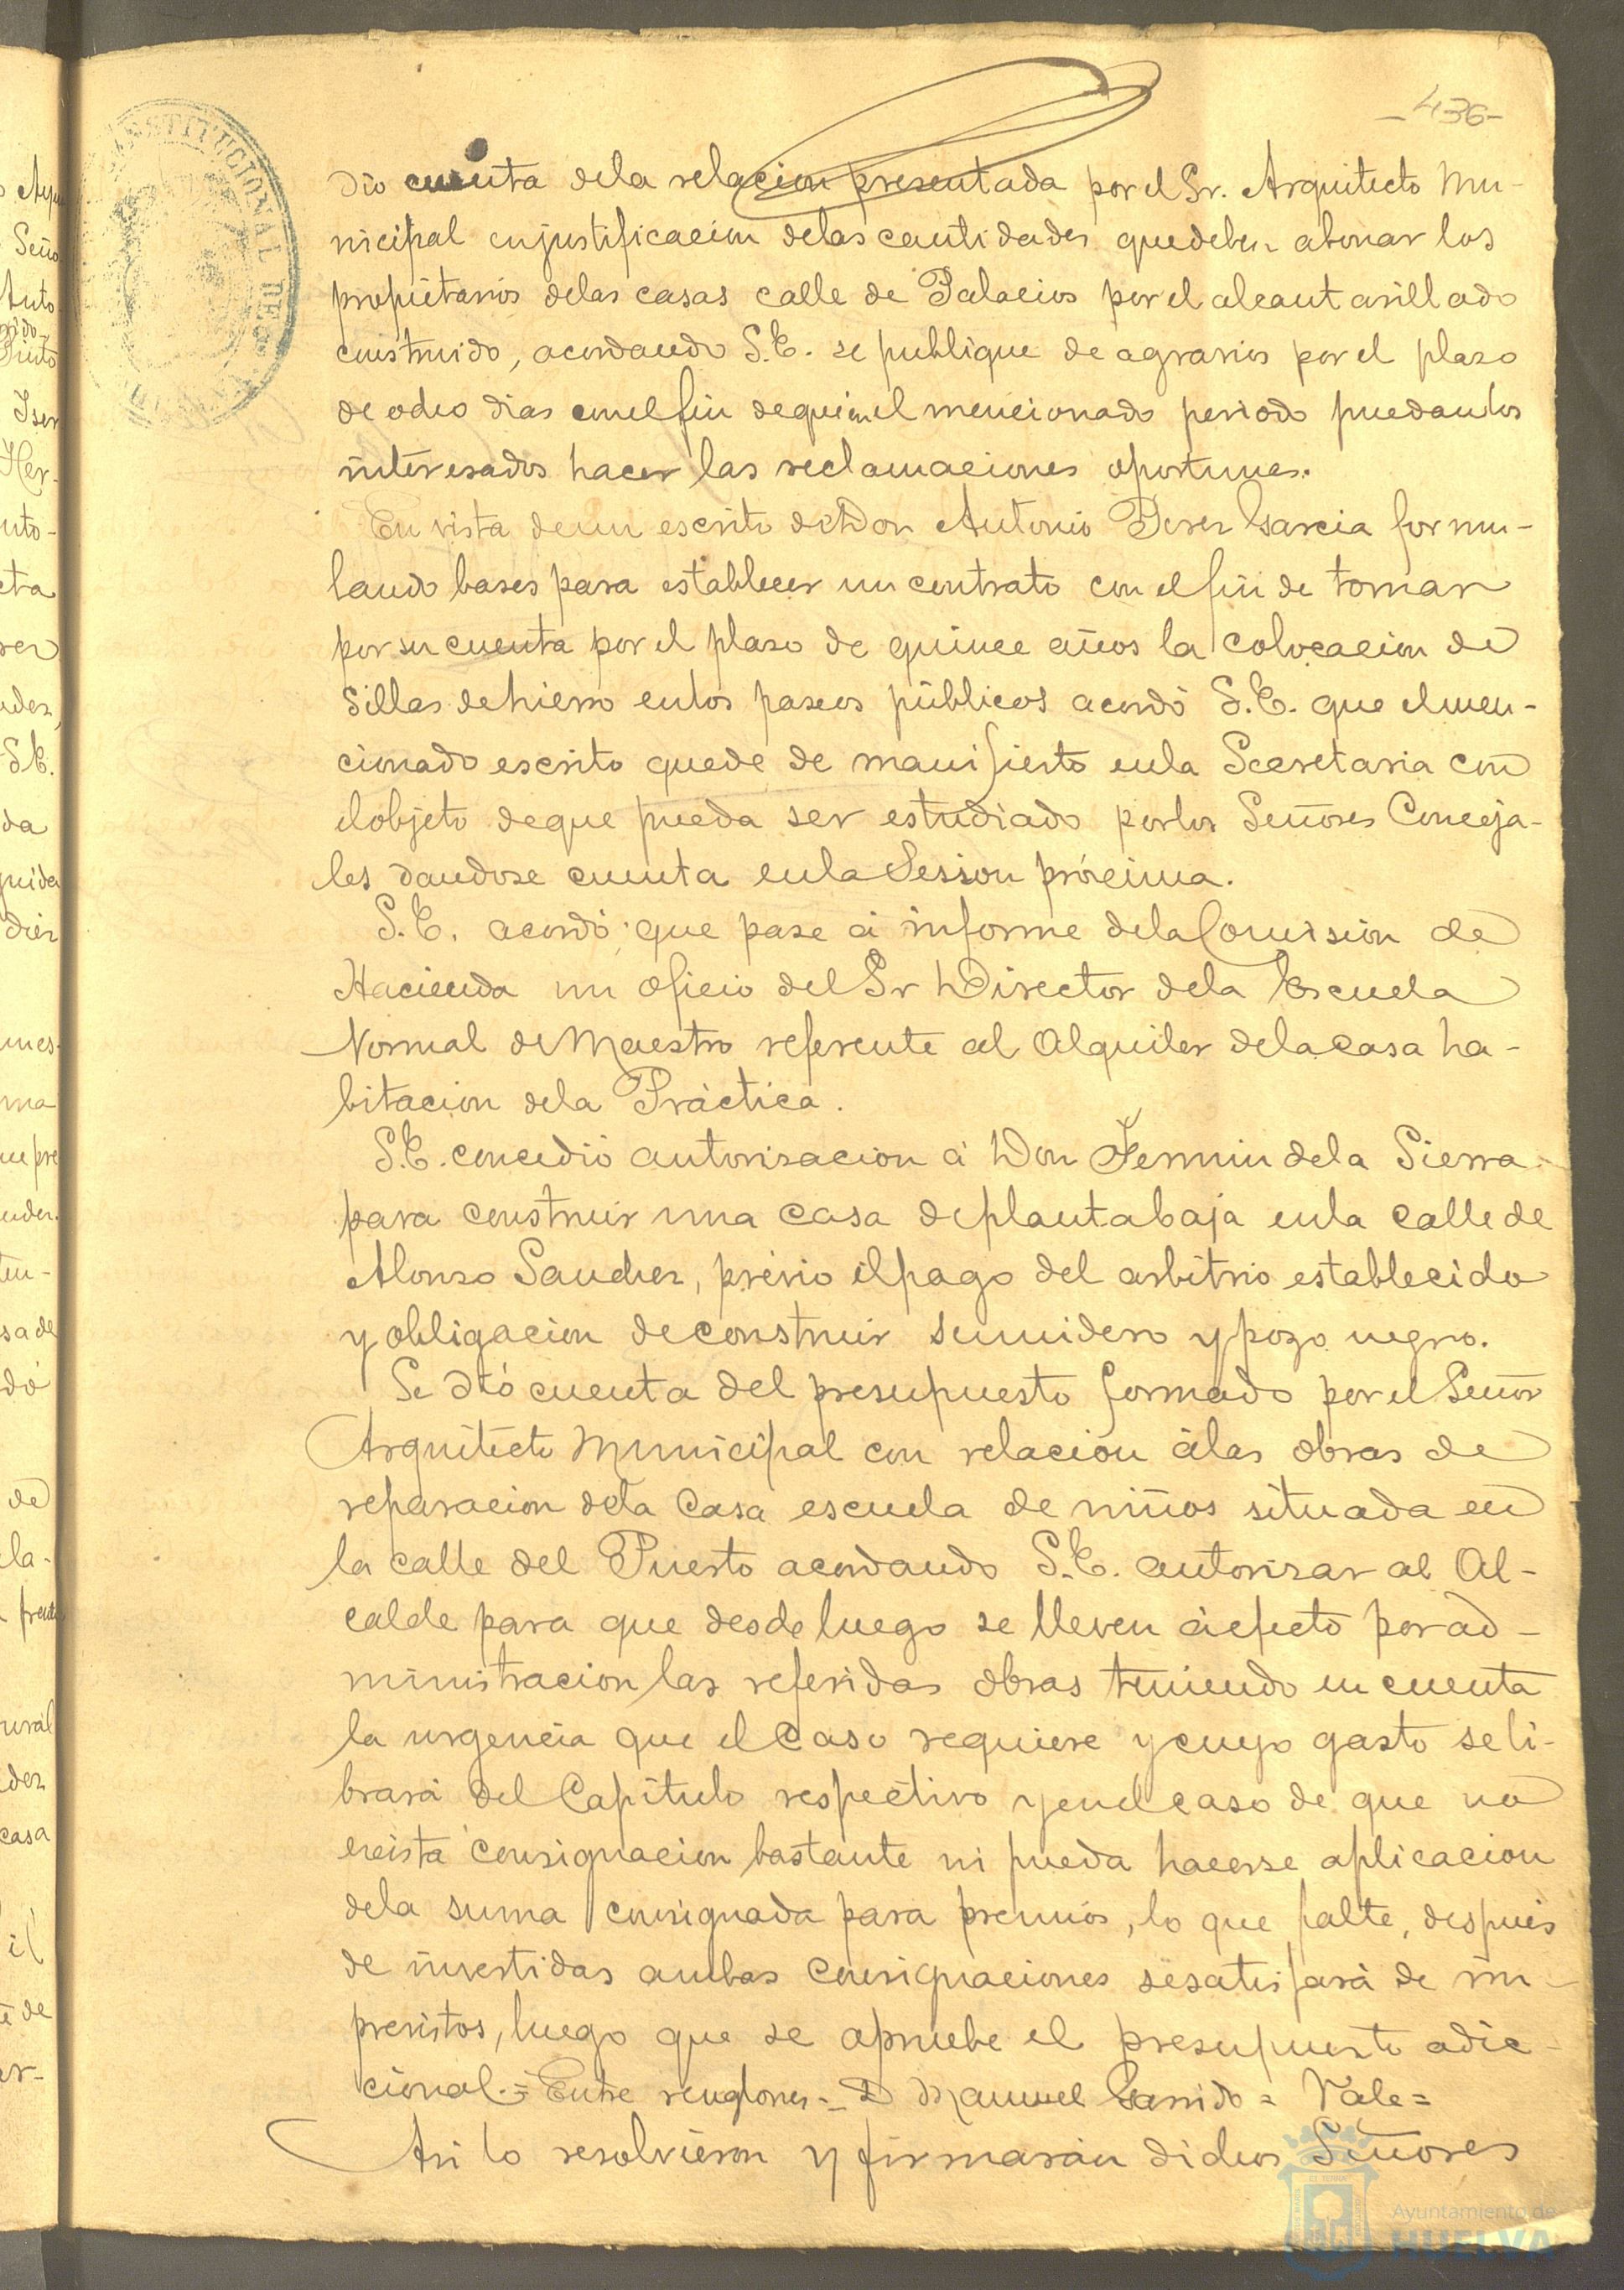 -436-
dio cuenta dela relacion presentada por el Sr. Arquitecto Mu-
nicipal enjustificacion delas cantidades quedeben abonar los
propietarios delas casas calle de Palacios por el alcantarillado
construido, acordando S.E. se publique de agravios por el plazo
de ocho dias conelfin dequeenel mencionado periodo puedanlos
interesados hacer las reclamaciones oportunas.
En vista deun escrito deDon Antonio Perez Garcia formu-
lando bases para establecer un contrato con el fin de tomar
por su cuenta por el plazo de quince años la colocacion de
sillas dehierro enlos paseos públicos acordó S.E. que elmen-
cionado escrito quede de manifiesto enla Secretaria con
elobjeto deque pueda ser estudiado porlos Señores Conceja-
les dandose cuenta enla Sesion próxima.
S.E. acordó que pase á informe dela Comision de
Hacienda un oficio del Sr Director dela Escuela
Normal de Maestro referente al Alquiler delacasa ha-
bitacion dela Práctica.
S.E. concedió autorizacion á Don Fermin dela Sierra
para construir una casa deplantabaja enla calle de
Alonso Sanchez, prévio elpago del arbitrio establecido
y obligacion deconstruir sumidero y pozo negro.
Se dió cuenta del presupuesto formado por el Señor
Arquitecto Municipal con relacion álas obras de
reparacion dela Casa escuela de niños situada en
la calle del Puerto acordando S.E. autorizar al Al-
calde para que desde luego se lleven áefecto por ad-
ministracion las referidas obras teniendo en cuenta
la urgencia que el Caso requiere y cuyo gasto se li-
brará del Capítulo respectivo y enelcaso de que no
exista consignacion bastante ni pueda hacerse aplicacion
dela suma consignada para premios, lo que falte, despues
de invertidas ambas consignaciones sesatisfará de im-
previstos, luego que se apruebe el presupuesto adic-
cional.= Entre renglones = D Manuel Garrido = Vale =
Asi lo resolvieron y firmarán dichos Señores
Ayuntamiento de
HUELVA